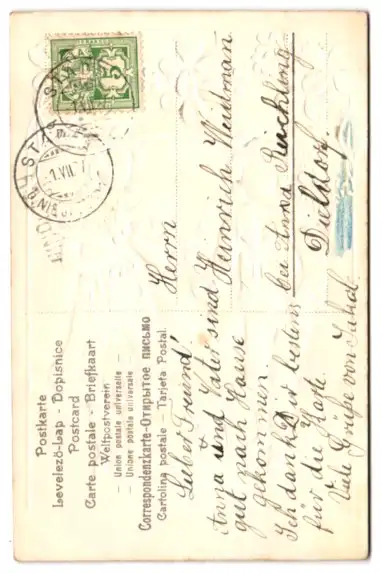 Postkarte
Levelező-Lap - Dopisnice
Postcard
Carte postale - Briefkaart
Weltpostverein
— Union postale universelle —
— Unione postale universale —
Correspondenzkarte-Открытое письмо
Cartolina postale - Tarjeta Postal.
5
Herrn
Heinrich Weidman
bei
Dieldorf
Lieber Freund!
Anna und Vater sind
gut nach Hause
gekommen.
Ich dank Dir bestens
für die Karte.
Viele Grüße von